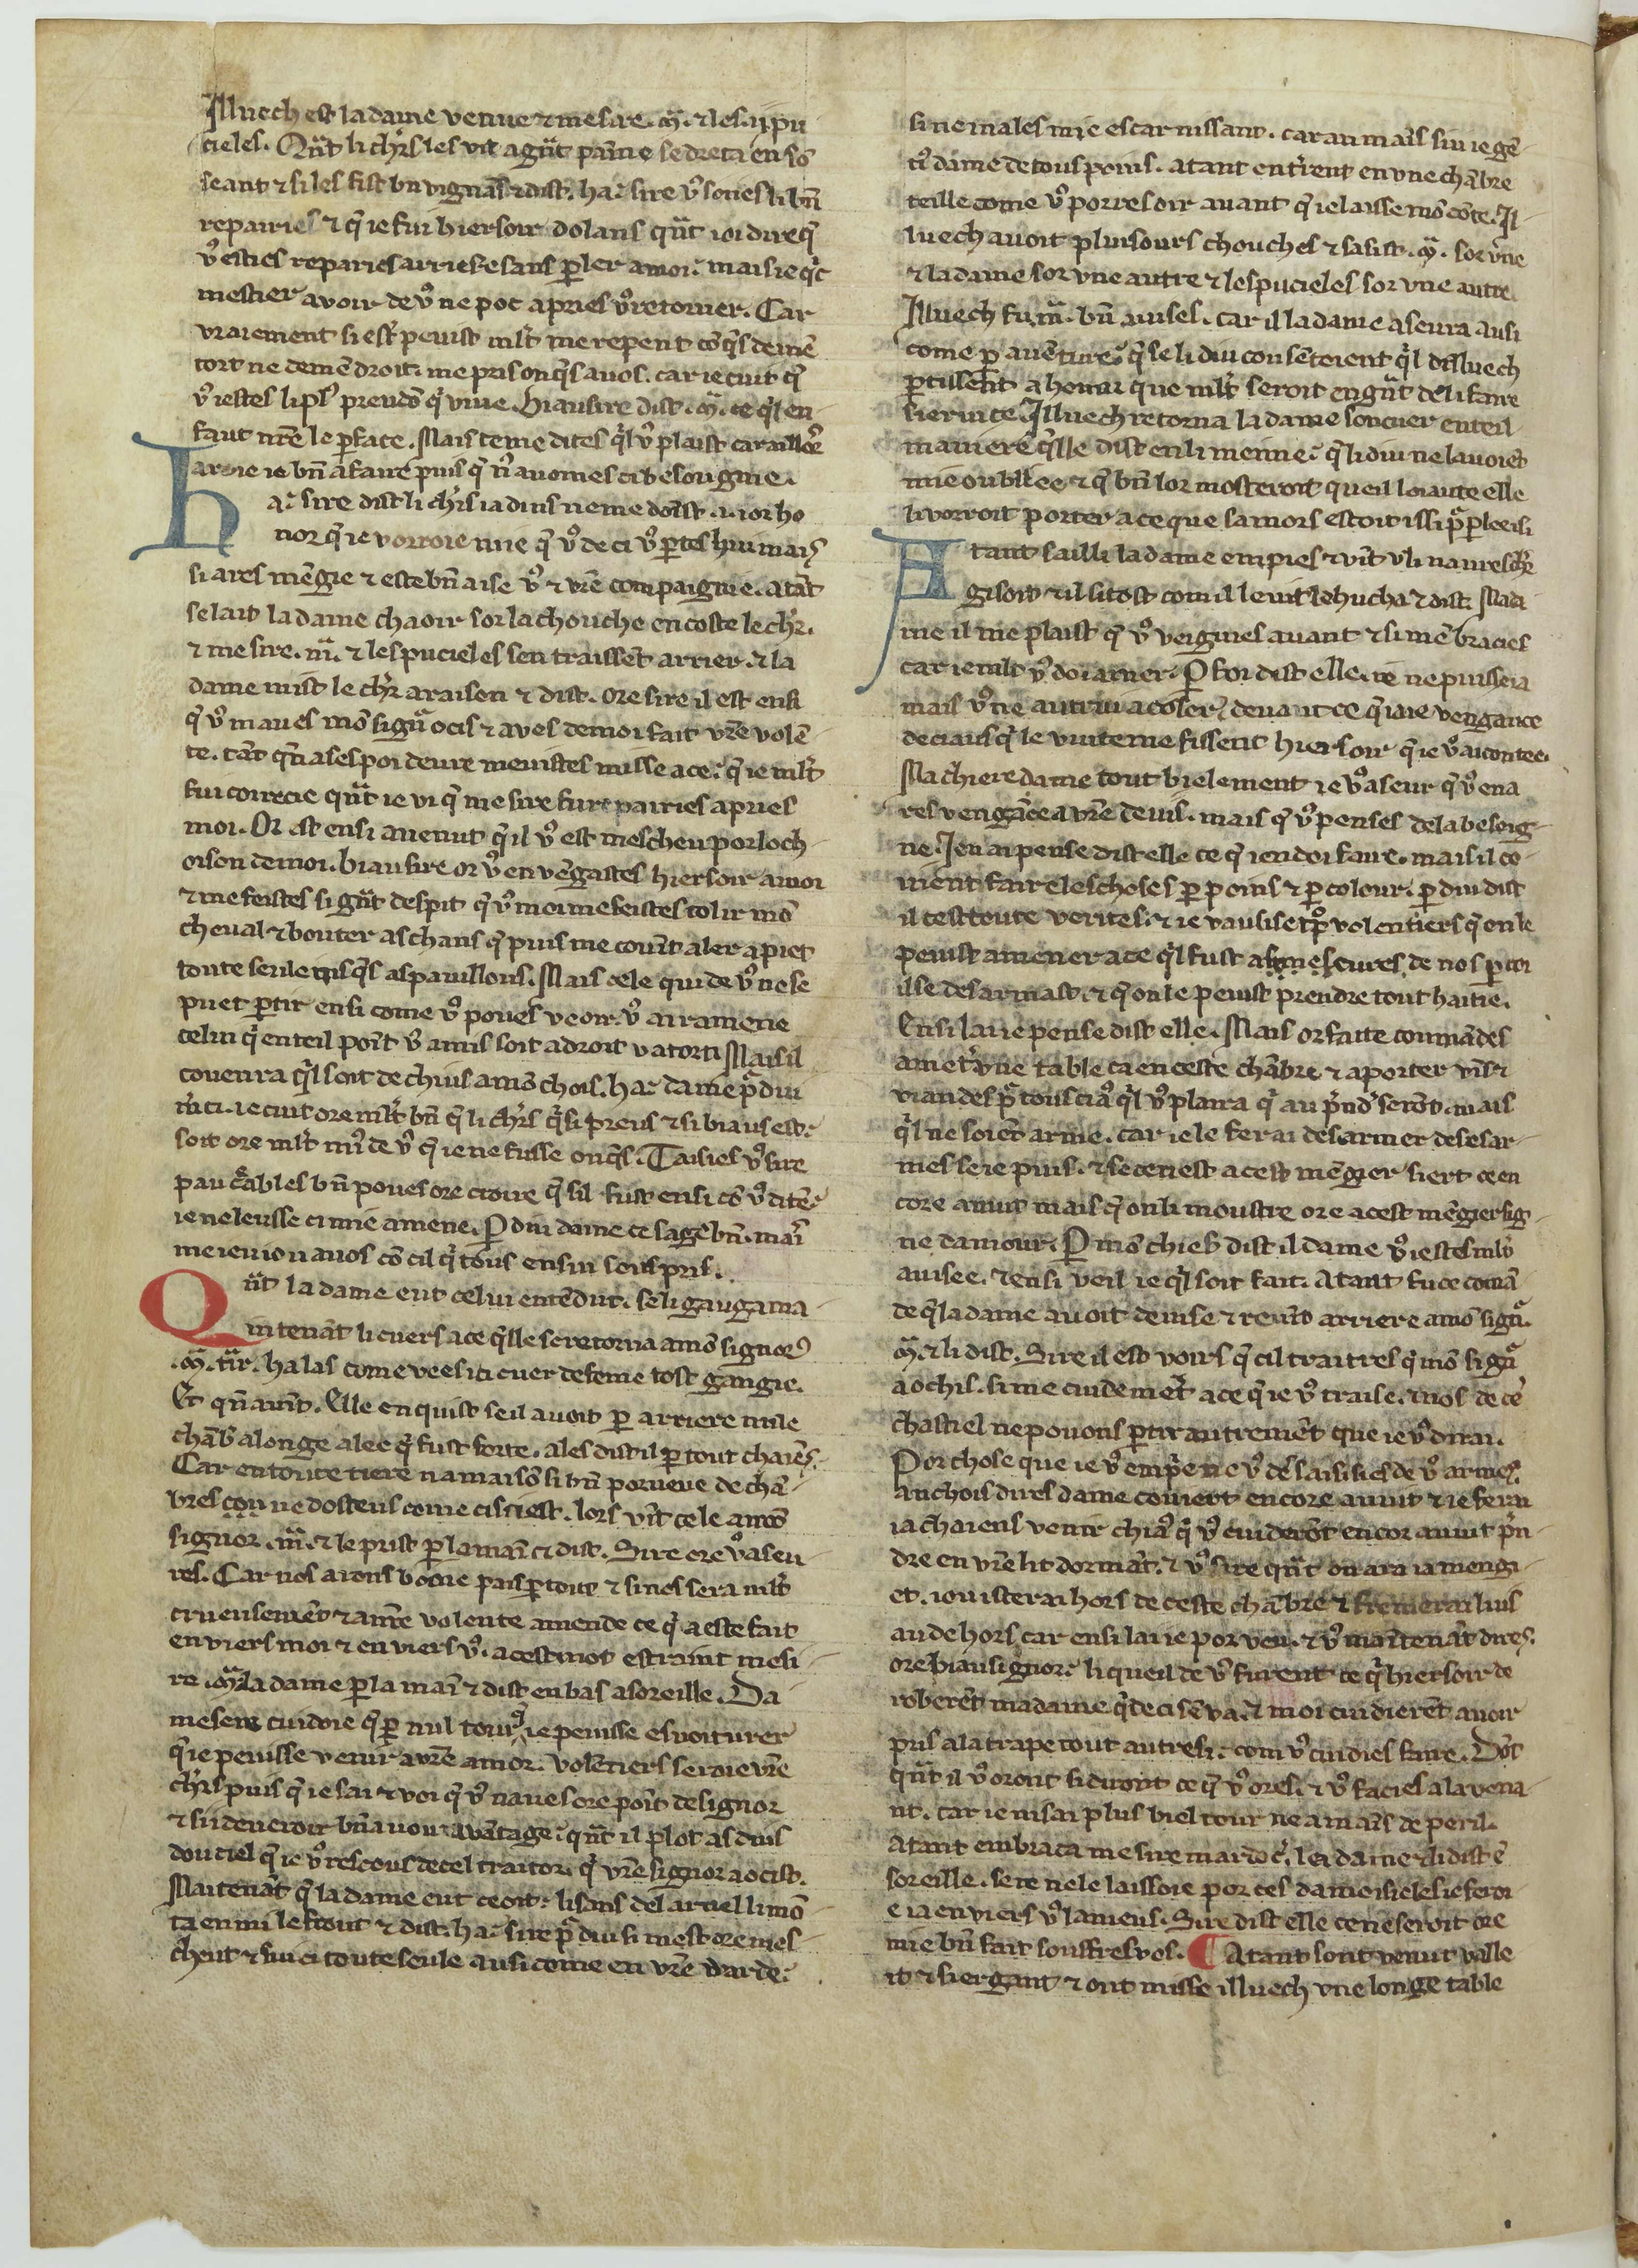 Illuech est la dame venue ⁊ mesire .M̃. ⁊ les .ij. pu
cieles. Qũt li ch̃rs les vit a gũt paine se dreca en sõ
seant ⁊ si les fist bñ vignãs ⁊ dist. ha. sire vꝰ soies li bñ
repairies ⁊ q̃ ie fui hier soir dolans qũt ioi dire q̃
vꝰ esties reparies arriere sans ꝑler a moi. mais ie q̃c
mestier avoir de vꝰ ne poc apries vꝰ retorner. Car
vraiement si estr̃ peuist ml̃t me repent cõq̃s de mẽ
tort ne de mẽ droit. me pris onq̃s a vos. car ie cuit q̃
vꝰ iestes li plꝰ preudõ q̃ vive. Biau sire dist .M̃. ce q̃l en
faut nr̃e le ꝑface. Mais ce me dites q̃l vꝰ plaist car aillors
aroie ie bñ a faire puis q̃ nꝰ avomes ci besongnie.
ha. sire dist li ch̃rs ia dius ne me doinst .i. ior ho
nor q̃ ie vorroie mie q̃ vꝰ de ci vꝰ ꝑtes hui mais
si ares mẽgie ⁊ este bñ aise vꝰ ⁊ vr̃e compaignie. atãt
se lait la dame chaoir sor la chouche en coste le ch̃r.
⁊ mesire .M̃. ⁊ les pucieles sen traissẽt arrier. ⁊ la
dame mist le ch̃r a raison ⁊ dist. ore sire il est ensi
q̃ vꝰ maves mõ signr̃ ocis ⁊ aves de moi fait vr̃e volẽ
te. tãt
fui correcie qũt ie vi q̃ mesire fu repairies apries
moi. Or est ensi avenut q̃ il vꝰ est mescheu por loch
oison de moi. biau sire or vꝰ en vẽgastes hier soir a moi
⁊ me feistes si gũt despit q̃ vꝰ moi me feistes tolir mõ
cheval ⁊ bouter as chans q̃ puis me covĩt aler a piet
toute seule iusq̃s as pavillons. Mais cele qui de vꝰ ne se
puet ꝑtir ensi come vꝰ poves veoir. vꝰ a i ramene
celui q̃ en teil poĩt vꝰ a mis soit a droit v a tort. Mais il
covenra q̃l soit de chius a mõ chois. ha. dame p̃ diu
m̃ci. ie cuit ore ml̃t bñ q̃ li ch̃rs q̃ si preus ⁊ si biaus est.
soit ore ml̃t mꝰ de vꝰ q̃ ie ne fusse onq̃s. Taisies vꝰ sire
bñ poves ore croire q̃ sil fust ensi cõ vꝰ dites.
ie ne leusse ci mie amene. P diu dame ce sage bñ. mai
me ie cil q̃ tous en sui souspris.
Qũt la dame eut celui entẽdut. se li gaugama
intenãt li cuers a ce q̃lle se retorna a mõ signor
.M̃. arr̃. halas come vees ici cuer de feme tost gangie.
Et qñ avint. Elle enquist se il avoit ꝑ arriere nule
chãbr̃ a longe alee q̃ fust forte. ales dist il ꝑ tout chaiẽs.
Car en toute tiere na maisõ si bñ porveue de chã
bres con ne dosteus come cis ci est. lors vĩt cele a mõ
signor .M̃. ⁊ le prist ꝑ la main ⁊ dist. Sire ore vꝰ aseu
res. Car nos arons boine pais ꝑ tout ⁊ si nos sera ml̃t
cruensemẽt ⁊ a nr̃e volente amende ce q̃ a este fait
enviers moi ⁊ enviers vꝰ. a cest mot estraint mesi
re .M̃. la dame ꝑ la mai ⁊ dist en bas a soreille. Da
me se cuidoie q̃ ꝑ nul tour ie peuisse esvoiturer
q̃ ie peuisse venir a vr̃e amor. volẽtiers seroie vr̃e
ch̃rs puis q̃ ie sai ⁊ voi q̃ vꝰ naves ore poĩt de signor
⁊ si i deveroie bñ avoir avãtage. qũt il plot as dius
dou ciel q̃ ie vꝰ rescous de cel traitor. q̃ vr̃e signor a ocist.
Maitenãt q̃ la dame eut ce oit. li sans del ortueil li mõ
ta en mi le front ⁊ dist. ha. sire p̃ diu si mest ore mes
cheut ⁊ sui ci toute seule ausi come en vr̃e varde.
si ne males mie escarnissant. car au mais sui ie gẽ
tiꝰ dame de tous poins. atant entr̃ent en vne chãbre
teille come vꝰ porres oir avant q̃ ie laisse mõ cõte. Il
luech avoit pluisours chouches ⁊ sasist .M̃. sor vne
⁊ la dame sor vne autre ⁊ les pucieles sor vne autre.
Illuech fu .M̃. bñ avises. car il la dame aseura ausi
come ꝑ avẽture. q̃ se li diu consẽtoient q̃l dilluech
ꝑtissent a honor que ml̃t seroit en gũt de li faire
siervice. Illuech retorna la dame son cuer en teil
maniere q̃lle dist en li meime. q̃ li diu ne lavoiẽt
mie oubliee ⁊ q̃ bñ lor mosteroit queil loiaute elle
li vorroit porter a ce que samors estoit issi
Atant sailli la dame em pies ⁊ vĩt v li navres ch̃r
gisoit ⁊ il si tost com il le vit le hucha ⁊ dist. Mada
me il me plaist q̃ vꝰ veignies avant ⁊ si mẽbracies
car ie ml̃t vꝰ doi amer. P foi dist elle. ie ne puis ia
mais vꝰ ne autrui acoler. devant ce q̃ iaie vengance
de ciaus q̃ le viute me fissent hier soir q̃ ie vꝰ ai contee.
Ma chiere dame tout bielement ie vꝰ aseur q̃ vꝰ ena
res vengãce a vr̃e devis. mais q̃ vꝰ penses de la besoig
ne. Ien ai pense dist elle ce q̃ ien doi faire. mais il co
vient faire les choses ꝑ poins ⁊ ꝑ colour. ꝑ diu dist
il cest toute verites. ⁊ ie vausise volentiers q̃ on le
peuist amener a ce q̃l fust aseures de nos ꝑ coi
il se desarmast. ⁊ q̃ on le peuist prendre tout haitie.
Ensi lai ie pense dist elle. Mais or faite coumãdes
a metr̃ vne table ca en ceste chãbre ⁊ aporter vĩs ⁊
viandes p̃ tous ciaꝰ q̃l vꝰ plaira q̃ au p̃ndr̃ serõt. mais
q̃l ne soiẽt arme. car ie le ferai desarmer de ses ar
mes se ie puis. ⁊ se ce nest a cest mẽgier siert ce en
core anuit mais q̃ on li moustre ore a cest mẽgier sig
ne damour. P mõ chief dist il dame vꝰ iestes ml̃t
avisee. ⁊ ensi veil ie q̃l soit fait. Atant fu ce comã
de q̃ la dame avoit devise ⁊ revĩt arriere a mõ signr̃
.M̃. ⁊ li dist. Sire il est voirs q̃ cil traitres q̃ mõ signr̃
a ochis. si me cuide metr̃ a ce q̃ ie vꝰ traisse. ⁊ nos de ce
chastiel ne poons ꝑtir autremẽt que ie vꝰ dirai.
Por chose que ie vꝰ emp̃ne ne vꝰ dessaisisies de vꝰ armes.
anchois dires dame couvient encore anuit ⁊ ie ferai
ia chaiens venir chiaꝰ q̃ vꝰ cuiderõt encor anuit p̃n
dre en vr̃e lit dormãt. ⁊ vꝰ sire qũt on ara ia mengi
et. iou isterai hors de ceste chãbre ⁊ fremerai luis
au dehors car ensi lai ie porveu. ⁊ vꝰ maĩtenãt dires.
ore biau signor. li queil de vꝰ furent ce q̃ hier soir de
roberẽt ma dame q̃ de ci sẽ va. ⁊ moi cuidierẽt avoir
pris a la trape tout autresi. com vꝰ cuidies faire. Dõt
qũt il vꝰ oront si diront ce q̃ vꝰ ores. ⁊ vꝰ facies a lavena
nt. car ie ni sai plus biel tour ne a mais de peril.
Atant embraca mesire mardoc̃. la dame ⁊ li dist ẽ
soreille. se ie ne le laissoie por ces damoisieles ie feroi
e ia enviers vꝰ lamens. Sire dist elle ce ne seroit ore
mie bñ fait souffres vos. ¶ Atant sont venut valle
it ⁊ siergant ⁊ ont misse illuech vne longe table